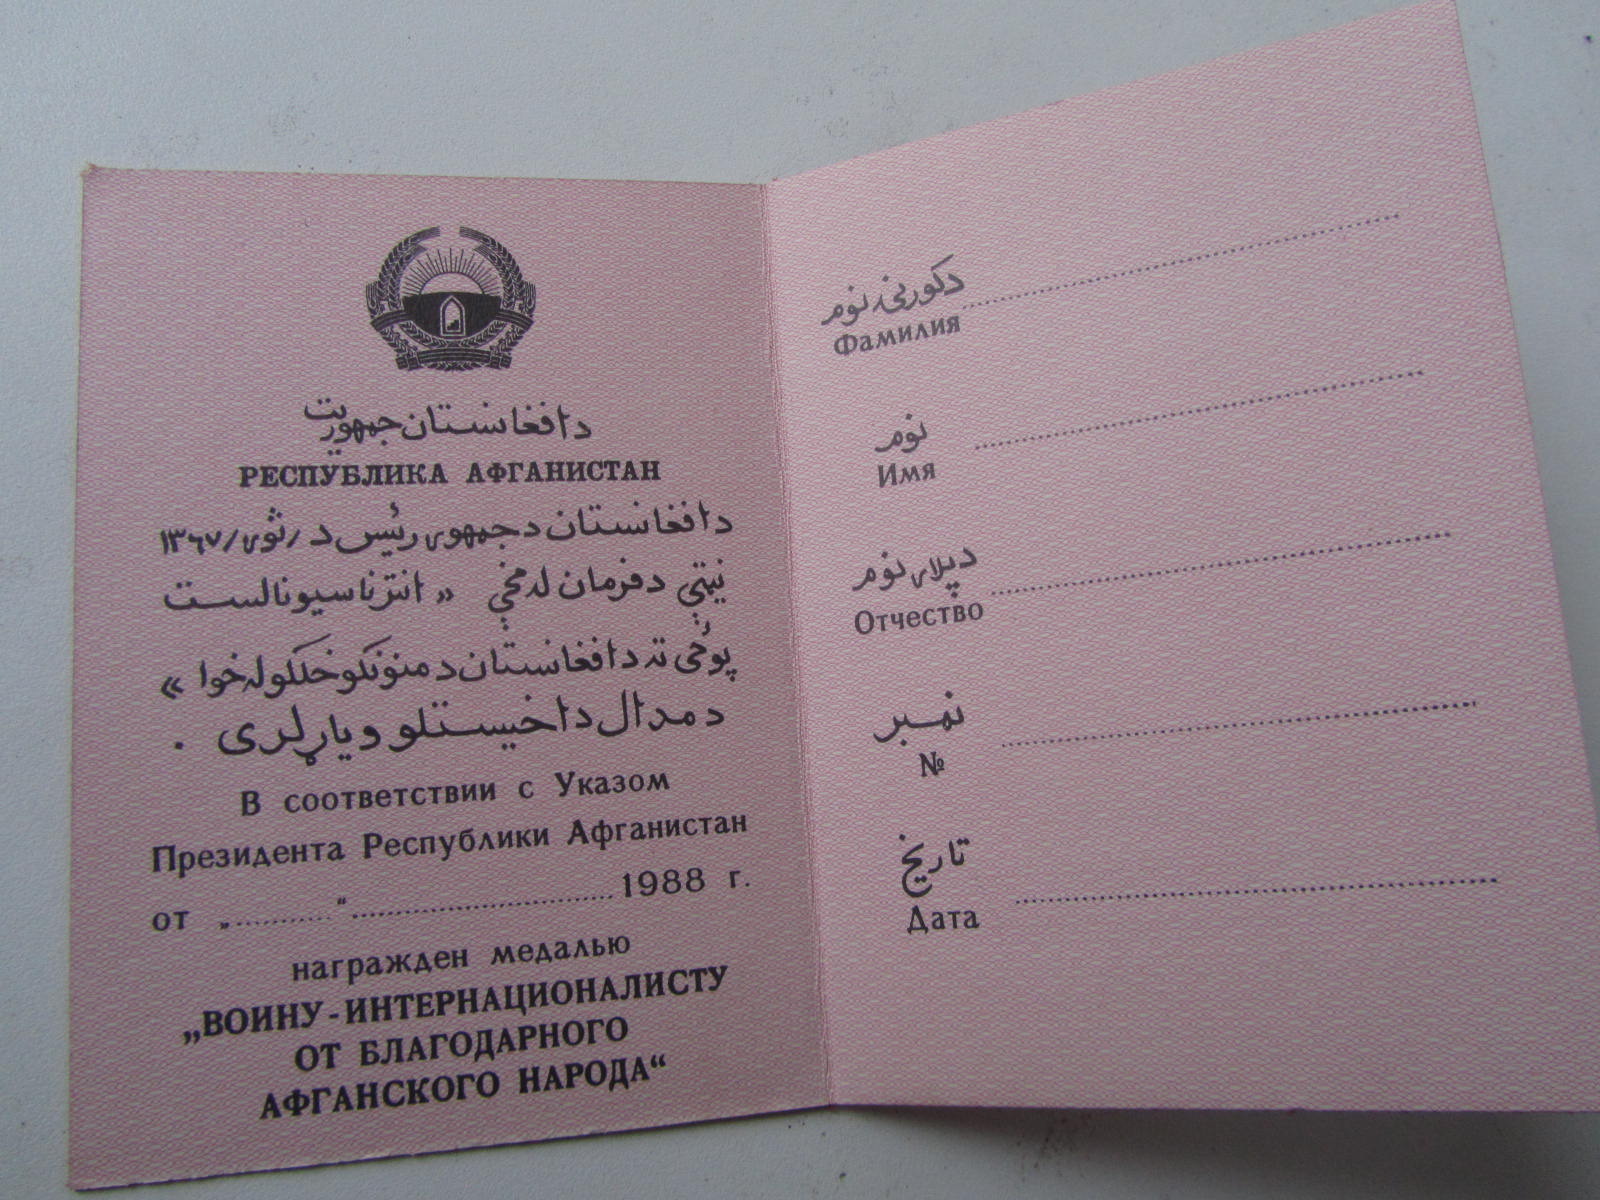 د افغانستان جمهوریت
РЕСПУБЛИКА АФГАНИСТАН
د افغانستان د جمهور رئیس د / ثور / ۱۳۶۷
نیټې د فرمان له مخې « انترناسیونالست
پوځی ته د افغانستان د منونکو خلکو له خوا »
د مدال د اخیستلو ویاړ لری .
В соответствии с Указом
Президента Республики Афганистан
от „...........“.............................. 1988 г.
награжден медалью
„ВОИНУ-ИНТЕРНАЦИОНАЛИСТУ
ОТ БЛАГОДАРНОГО
АФГАНСКОГО НАРОДА“
د کورنۍ نوم
Фамилия
نوم
Имя
د پلار نوم
Отчество
نمبر
№
تاریخ
Дата